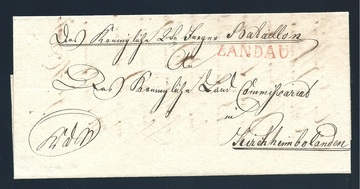 Das Königliche 2te Jaeger Bataillon
LANDAU
An
Das Königliche Land Commissariat
in
Kirchheimbolanden